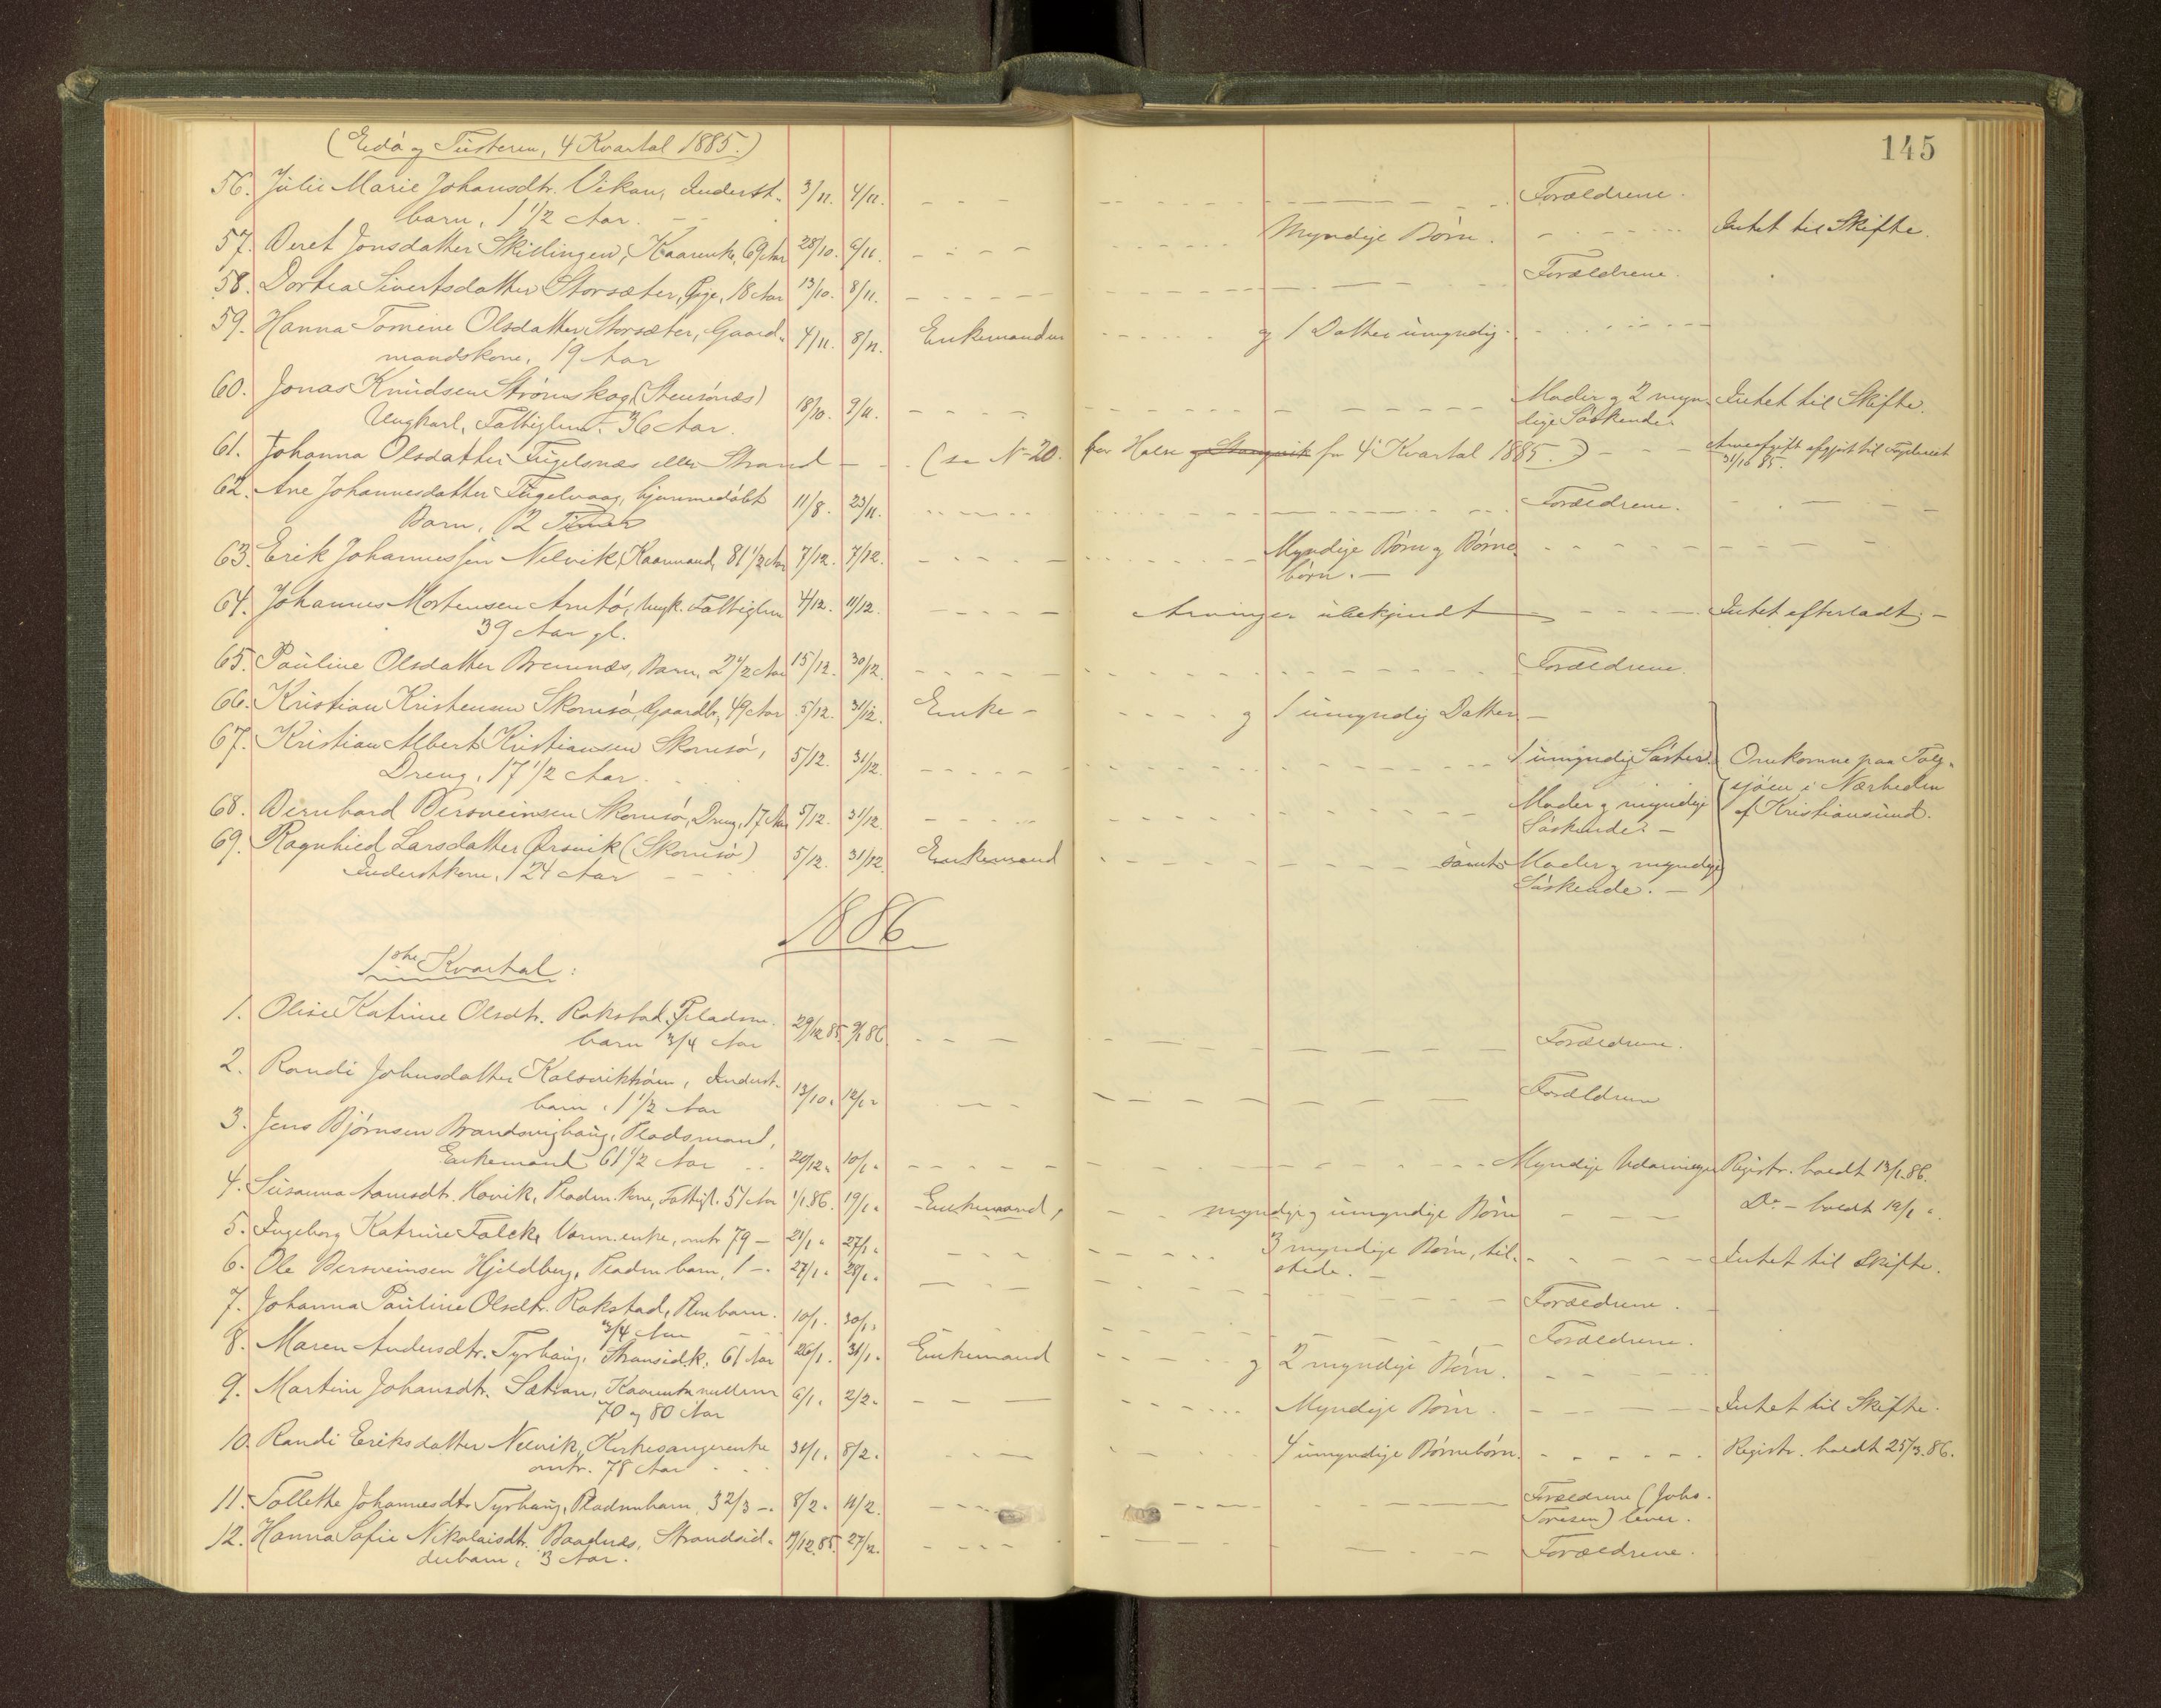 145
(Edö og Tusteren, 4 Kvartal 1885.)
56. Julie Marie Johansdtr. Vikan, Inderst- 3/11. 4/11. Forældrene.
barn, 1 1/2 Aar.
57. Beret Jonsdatter Skillingen, Kaarenke, 69 Aar 28/10. 6/11. Myndige Børn. Intet til Skifte.
58. Dortea Sivertsdatter Storsæter, Pige, 18 Aar 13/10. 8/11. Forældrene.
59. Hanna Tomine Olsdatter Storsæter, Gaard- 4/11. 8/11. Enkemanden og 1 Datter umyndig.
mandskone, 19 Aar
60. Jonas Knudsen Strømskag (Stensønæs) 18/10. 9/11. Moder og 2 myn- Intet til Skifte.
Ungkarl, Fattiglem. 36 Aar. dige Søskende.
61. Johanna Olsdatter Fugelsnæs eller Strand (se No 20 for Halse for 4' Kvartal 1885.) Arveafgift afgjort til Fogderiet
31/16 85.
62. Ane Johannesdatter Fugelvaag, hjemmedøbt 11/8. 23/11. Forældrene.
Barn, 12 Timer
63. Erik Johannessen Nelvik, Kaarmand, 81 1/2 Aar 7/12. 7/12. Myndige Børn og Børne-
børn.
64. Johannes Mortensen Arntø, Ungk. Fattiglem 4/12. 11/12. Arvinger ubekjendt Intet efterladt.
39 Aar gl.
65. Pauline Olsdatter Bremnæs, Barn, 2 1/2 Aar 15/12. 30/12. Forældrene.
66. Kristian Kristensen Skorsø, Gaardbr., 49 Aar 5/12. 31/12. Enke - og 1 umyndig Datter
67. Kristian Albert Kristiansen Skorsø, 5/12. 31/12. 1 umyndig Søster. Omkomne paa Tog-
Dreng, 17 1/2 Aar. sjøen i Nærheden
68. Bernhard Bersveinsen Skorsø, Dreng, 17 Aar 5/12. 31/12. Moder og myndige af Kristiansund.
Søskende.
69. Ragnhild Larsdatter Ørsvik (Skorsø) 5/12. 31/12 Enkemand samt Moder og myndige
Inderstkone, 24 Aar Søskende.
1886
1ste Kvartal:
1. Olise Katrine Olsdtr. Rokstad, Pladsm. 29/12 85. 9/1 86. Forældrene.
barn 3/4 Aar
2. Randi Johnsdatter Kalsviktrøen, Inderst- 13/10. 12/1. Forældrene
barn, 1 1/2 Aar
3. Jens Bjørnsen Brandsvighaug, Pladsmand,
Enkemand 61 1/2 Aar 20/12. 10/1. Myndige Udarvinger Registr. holdt 13/1. 86.
4. Susanna Aamsdtr. Hovik, Pladsm. kone, Fattigl. 51 Aar 1/1.86. 19/1. Enkemand, myndige og umyndige Børn Do - holdt 19/1
5. Ingeborg Katrine Falck, Varm. enke, omtr 79 - 21/1. 27/1. 3 myndige Børn, til- Intet til Skifte.
stede.
6. Ole Bersveinsen Hjeldberg, Pladsm barn, 1 -. 27/1. 28/1. Forældrene.
7. Johanna Pauline Olsdtr. Rokstad, Plm barn. 10/1. 30/1. Forældrene.
3/4 Aar
8. Maren Andersdtr. Tyrhaug, Stransidk. 61 Aar 26/1. 31/1. Enkemand og 2 myndige Børn.
9. Martine Johansdtr. Sætran, Kaarenke mellem 6/1. 2/2. Myndige Børn. Intet til Skifte.
70 og 80 Aar
10. Randi Eriksdatter Nelvik, Kirkesangerenke 31/1. 8/2. 4 umyndige Børnebørn. Registr. holdt 25/3. 86.
omtr. 78 Aar
11. Tollette Johannesdtr Tyrhaug, Pladsmbarn, 3 2/3 -. 8/2. 11/2. Forældrene (Johs.
Toresen) lever.
12. Hanna Sofie Nikolaisdtr. Baadnæs, Strandsid- 17/12.85. 27/2. Forældrene.
derbarn, 3 Aar.